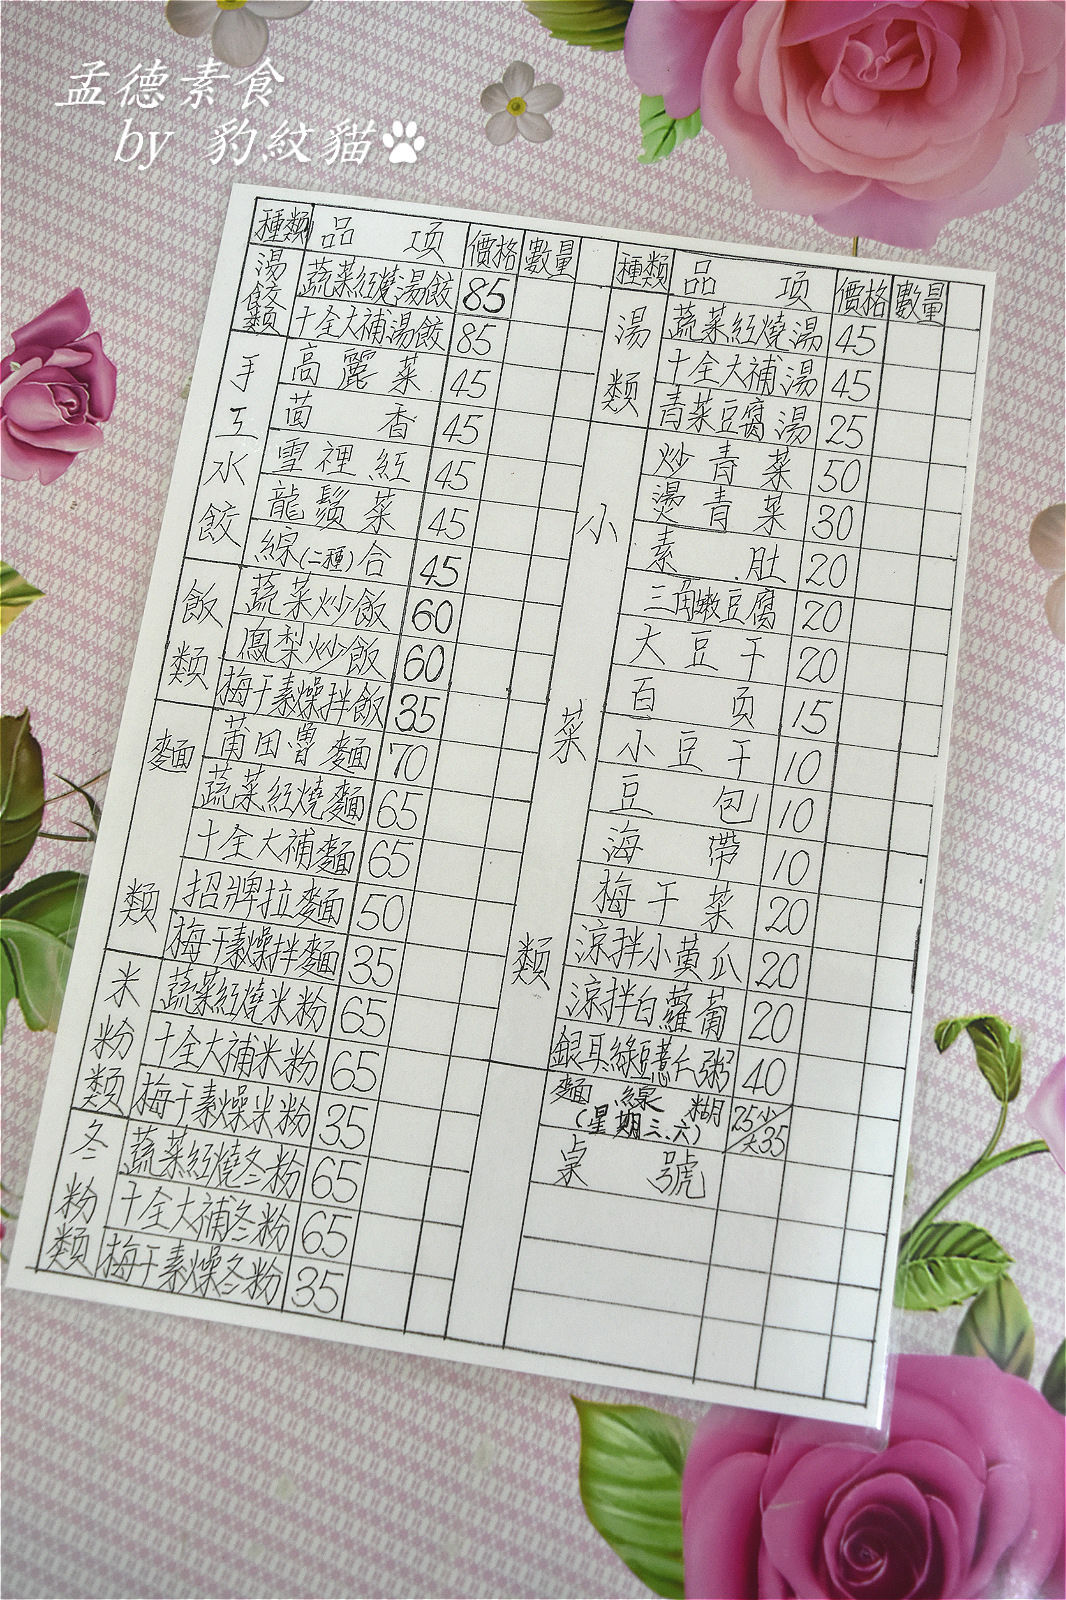 孟德素食
by 豹紋貓
種類 品項 價格 數量
湯餃類
蔬菜紅燒湯餃 85
十全大補湯餃 85
手工水餃
高麗菜 45
茴香 45
雪裡紅 45
龍鬚菜 45
綜(二種)合 45
飯類
蔬菜炒飯 60
鳳梨炒飯 60
梅干素燥拌飯 35
麵類
莆田魯麵 70
蔬菜紅燒麵 65
十全大補麵 65
招牌拉麵 50
梅干素燥拌麵 35
米粉類
蔬菜紅燒米粉 65
十全大補米粉 65
梅干素燥米粉 35
冬粉類
蔬菜紅燒冬粉 65
十全大補冬粉 65
梅干素燥冬粉 35
種類 品項 價格 數量
湯類
蔬菜紅燒湯 45
十全大補湯 45
青菜豆腐湯 25
小菜類
炒青菜 50
燙青菜 30
素肚 20
三角嫩豆腐 20
大豆干 20
百頁 15
小豆干 10
豆包 10
海帶 10
梅干菜 20
涼拌小黃瓜 20
涼拌白蘿蔔 20
銀耳綠豆薏仁粥 40
麵線糊 25小/大35
(星期三、六)
桌號